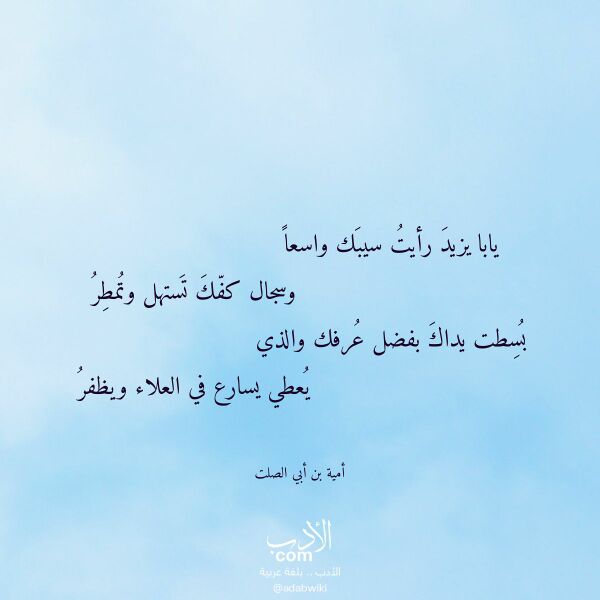 يابا يزيدَ رأيتُ سيبَك واسعاً
وسجال كفّكَ تَستهل وتُمطِرُ
بُسِطت يداكَ بفضل عُرفك والذي
يُعطي يسارع في العلاء ويظفرُ
أمية بن أبي الصلت
الأدب
.com
الأدب .. بلغة عربية
@adabwiki